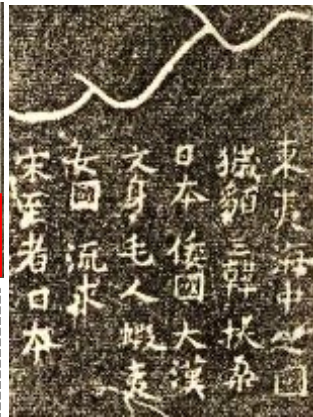 東夷海中之国
獩貊三韓扶桑
日本倭國大漢
文身毛人蝦夷
女国流求
宋至者日本